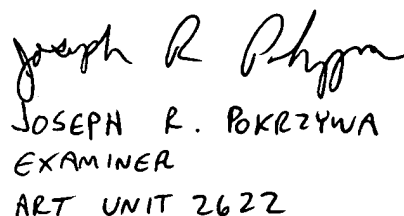 Joseph R Pokrzywa
JOSEPH R. POKRZYWA
EXAMINER
ART UNIT 2622